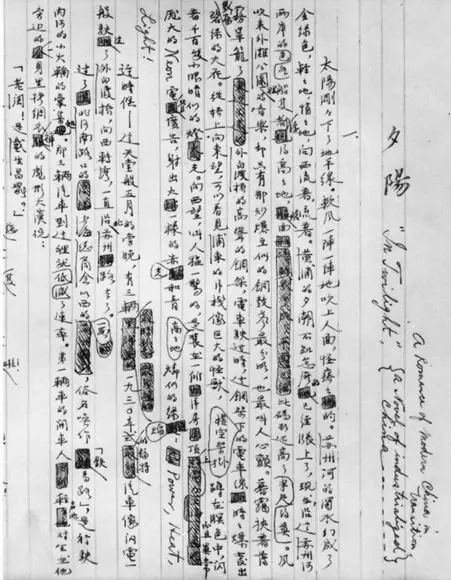 夕陽
"In Twilight,"
A Romance of Modern China in Transition,
(a Novel of industrialized China)
一
太陽剛々下了地平線。軟風一陣一陣地吹上人面,怪癢々的。蘇州河的濁水幻成了
金綠色,輕々地,悄々地,向西流着,流着。黃浦的夕潮不知怎的已經漲上了,現在沿這蘇州河
兩岸的各色船隻都浮得高々地,艙面比碼頭還高了半尺。風
吹來外灘公園的音樂,却只有那炒豆似的銅鼓聲最分明,也最叫人心顫。暮靄挾着薄
霧籠罩了外白渡橋的高聳的鋼架,電車駛過時,這鋼架下橫空架掛的電車線時々爆發出
碧綠的火花。從橋上向東望,可以看見浦東的洋棧像巨大的怪獸,蹲在暝色中,閃
着千百隻小眼睛似的燈火。向西望,叫人猛一驚的,是高々地裝在一所洋房頂上而且異常
龐大的Neon電管廣告,射出火一樣的赤光和青燐似的綠焰:Power, Heat,
Light!
這時候——這天堂般五月的傍晚,有三輛一九三〇年式的汽車像閃電一
般駛過了外白渡橋,向西轉彎,一直沿北蘇州路去了。
過了北河南路口的上海總商會以西的一段,俗名喚作「鐵馬路」,是行駛
內河的小火輪的彙集處。那三輛汽車到這裡就低減了速率。第一輛車的開車人輕聲地對坐在他
旁邊的身穿拷綢衣褲的彪形大漢說:
「老關!是戴生昌罷?」